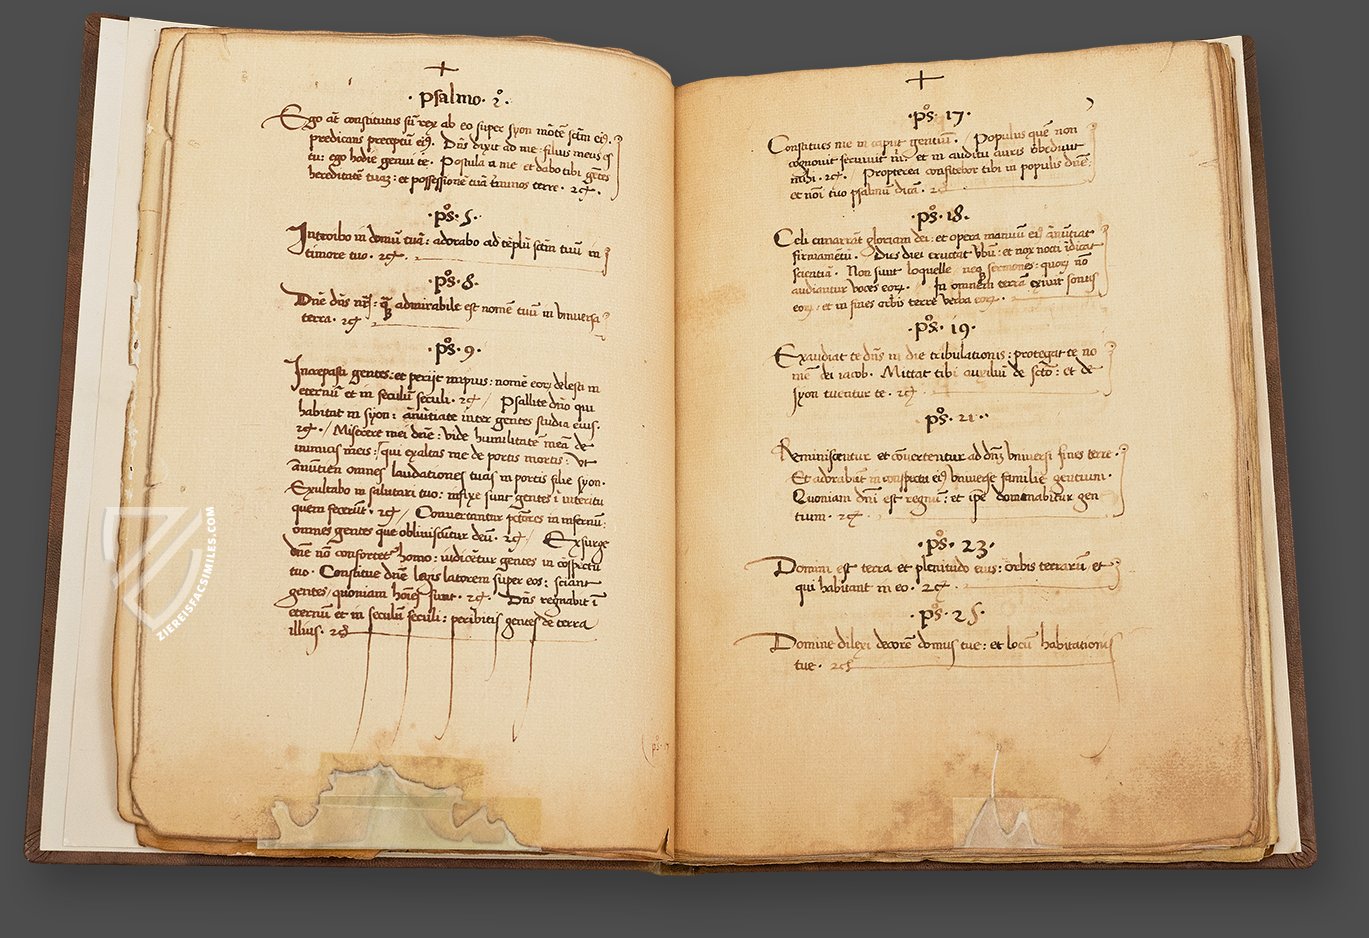 +
· psalmo · 2 ·
Ego aūt constitutus sū rex ab eo super syon mōtē sctm̄ eiꝰ.
predicans preceptū eiꝰ. Dn̄s dixit ad me filius meus es
tu: ego hodie genui te. Postula a me et dabo tibi gētes
hereditatē tuaz: et possessionē tuā t'minos terre. 2c̄.
· ps̊ · 5 ·
Introibo in domū tuā: adorabo ad tēplū sctm̄ tuū in
timore tuo. 2c̄.
· ps̊ · 8 ·
Dn̄e dn̄s nr̄: q̄ admirabile est nomē tuū in vniversa
terra. 2c̄.
· ps̊ · 9 ·
Increpasti gentes: et perijt impius: nomē eoꝝ delesti in
eternū et in seculū seculi. 2c̄ / Psallite dn̄o qui
habitat in syon: an̄ūtiate inter gentes studia eius.
2c̄. / Miserere mei dn̄e: vide humilitatē meā de
inimicis meis: qui exaltas me de portis mortis: vt
an̄ūtiem omnes laudationes tuas in portis filie syon.
Exultabo in salutari tuo: infixe sunt gentes ī interitu
quem fecerūt. 2c̄ / Convertantur pctōres in infernū:
omnes gentes que obliuiscūtur deū. 2c̄ / Exsurge
dn̄e nō confortet' homo: iudicētur gentes in cōspectu
tuo. Constitue dn̄e legis latorem super eos: sciant
gentes / quoniam hoīes sunt. 2c̄. Dn̄s regnabit ī
eternū et in seculū seculi: peribitis gentes de terra
illius. 2c̄
ps̊ 17
+
· ps̊ · 17 ·
Constitues me in caput gentiū. / Populus quē non
cognovit servivit m̄: et in auditu auris obedivit
mihi. 2c̄. Propterea confitebor tibi in populis dn̄e:
et noī tuo psalmū dicā. 2c̄
· ps̊ · 18 ·
Celi enarrāt gloriam dei: et opera manuū eiꝰ an̄ūtiat
firmametū. Dies diei eructat vbū: et nox nocti īdicat
scientiā. Non sunt loquelle neqꝫ sermones: quoꝝ nō
audiantur voces eoꝝ. In omnem terrā exivit sonus
eoꝝ, et in fines orbis terre verba eoꝝ.
· ps̊ · 19 ·
Exaudiat te dn̄s in die tribulationis: protegat te no
mē dei iacob. Mittat tibi auxiliū de sctō: et de
syon tueatur te. 2c̄.
ps̊ · 21 ·
Reminiscentur et cōvertentur ad dn̄ȝ vniversi fines terre.
Et adorabūt in conspectu eiꝰ vniverse familie gentium.
Quoniam dn̄i est regnū: et ipē domanabitur gen
tium. 2c̄.
· ps̊ · 23 ·
Domini est terra et plenitudo eius: orbis terrarū et
qui habitant in eo. 2c̄.
· ps̊ · 25 ·
Domine dilexi decorē domus tue: et locū habitationis
tue. 2c̄
ZIEREISFACSIMILES.COM